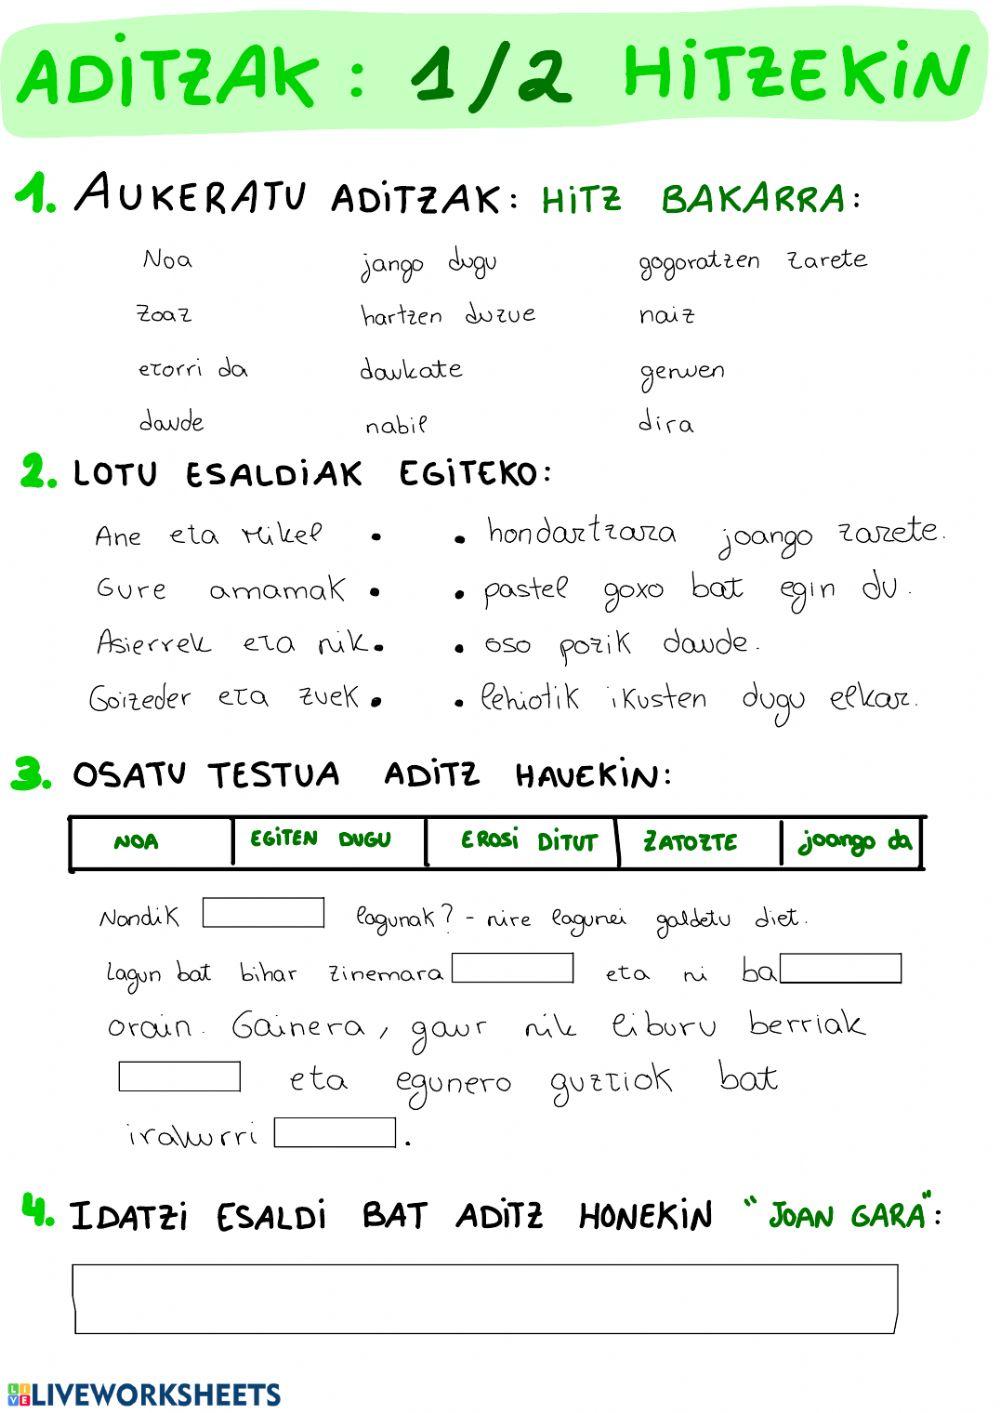 ADiTZAK : 1/2 HiTZEKiN
1. AUKERATU ADiTZAK: HiTZ BAKARRA:
Noa jango dugu gogoratzen zarete
zoaz hartzen duzue naiz
etorri da daukate genuen
daude nabil dira
2. LOTU ESALDiAK EGiTEKO:
Ane eta Mikel • • hondartzara joango zarete.
Gure amamak • • pastel goxo bat egin du.
Asierrek eta nik • • oso pozik daude.
Goizeder eta zuek • • lehiotik ikusten dugu elkar.
3. OSATU TESTUA ADiTZ HAUEKiN:
NOA EGiTEN DUGU EROSi DiTUT ZATOZTE joango da
Nondik lagunak? - nire lagunei galdetu diet.
Lagun bat bihar zinemara eta ni ba
orain. Gainera, gaur nik liburu berriak
eta egunero guztiok bat
irakurri .
4. IDATZi ESALDi BAT ADiTZ HONEKiN "JOAN GARA":
LIVE LIVEWORKSHEETS